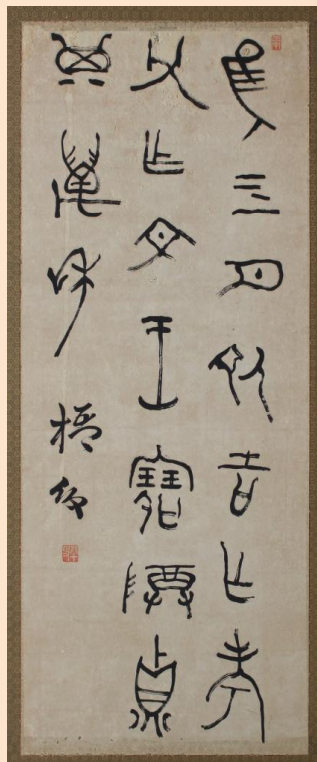 隹三月初吉乍考
父乍文王寶尊貞
其萬年